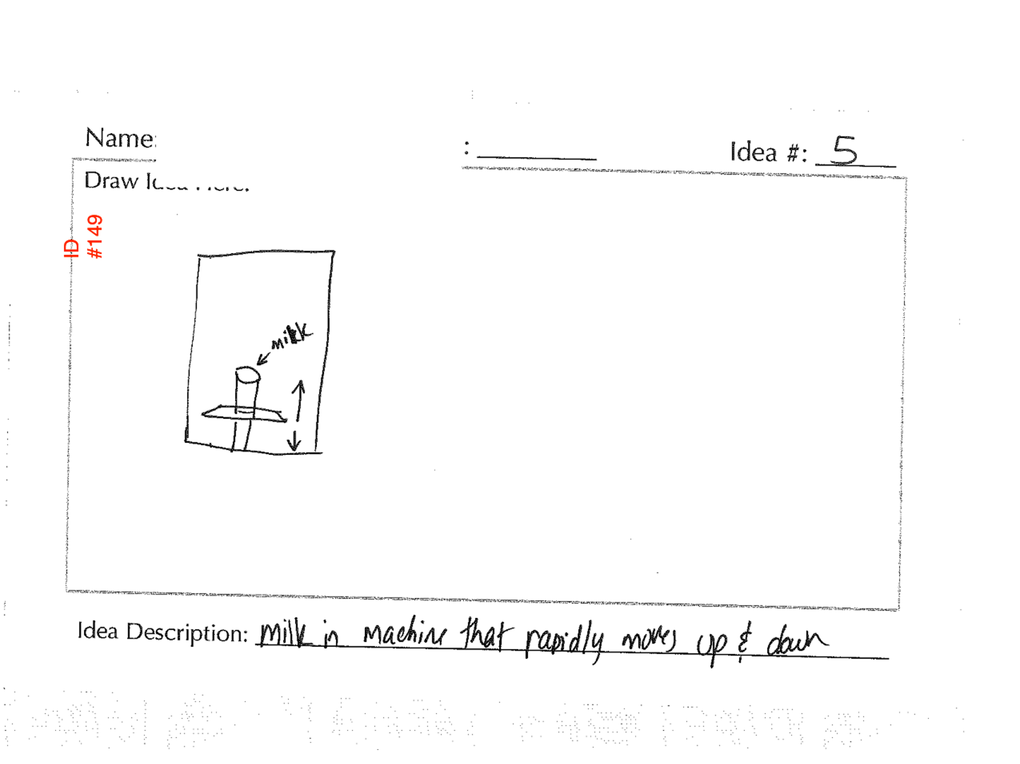 Name:
: Idea #: 5
Draw Idea Here:
ID
#149
milk
Idea Description: milk in machine that rapidly moves up & down